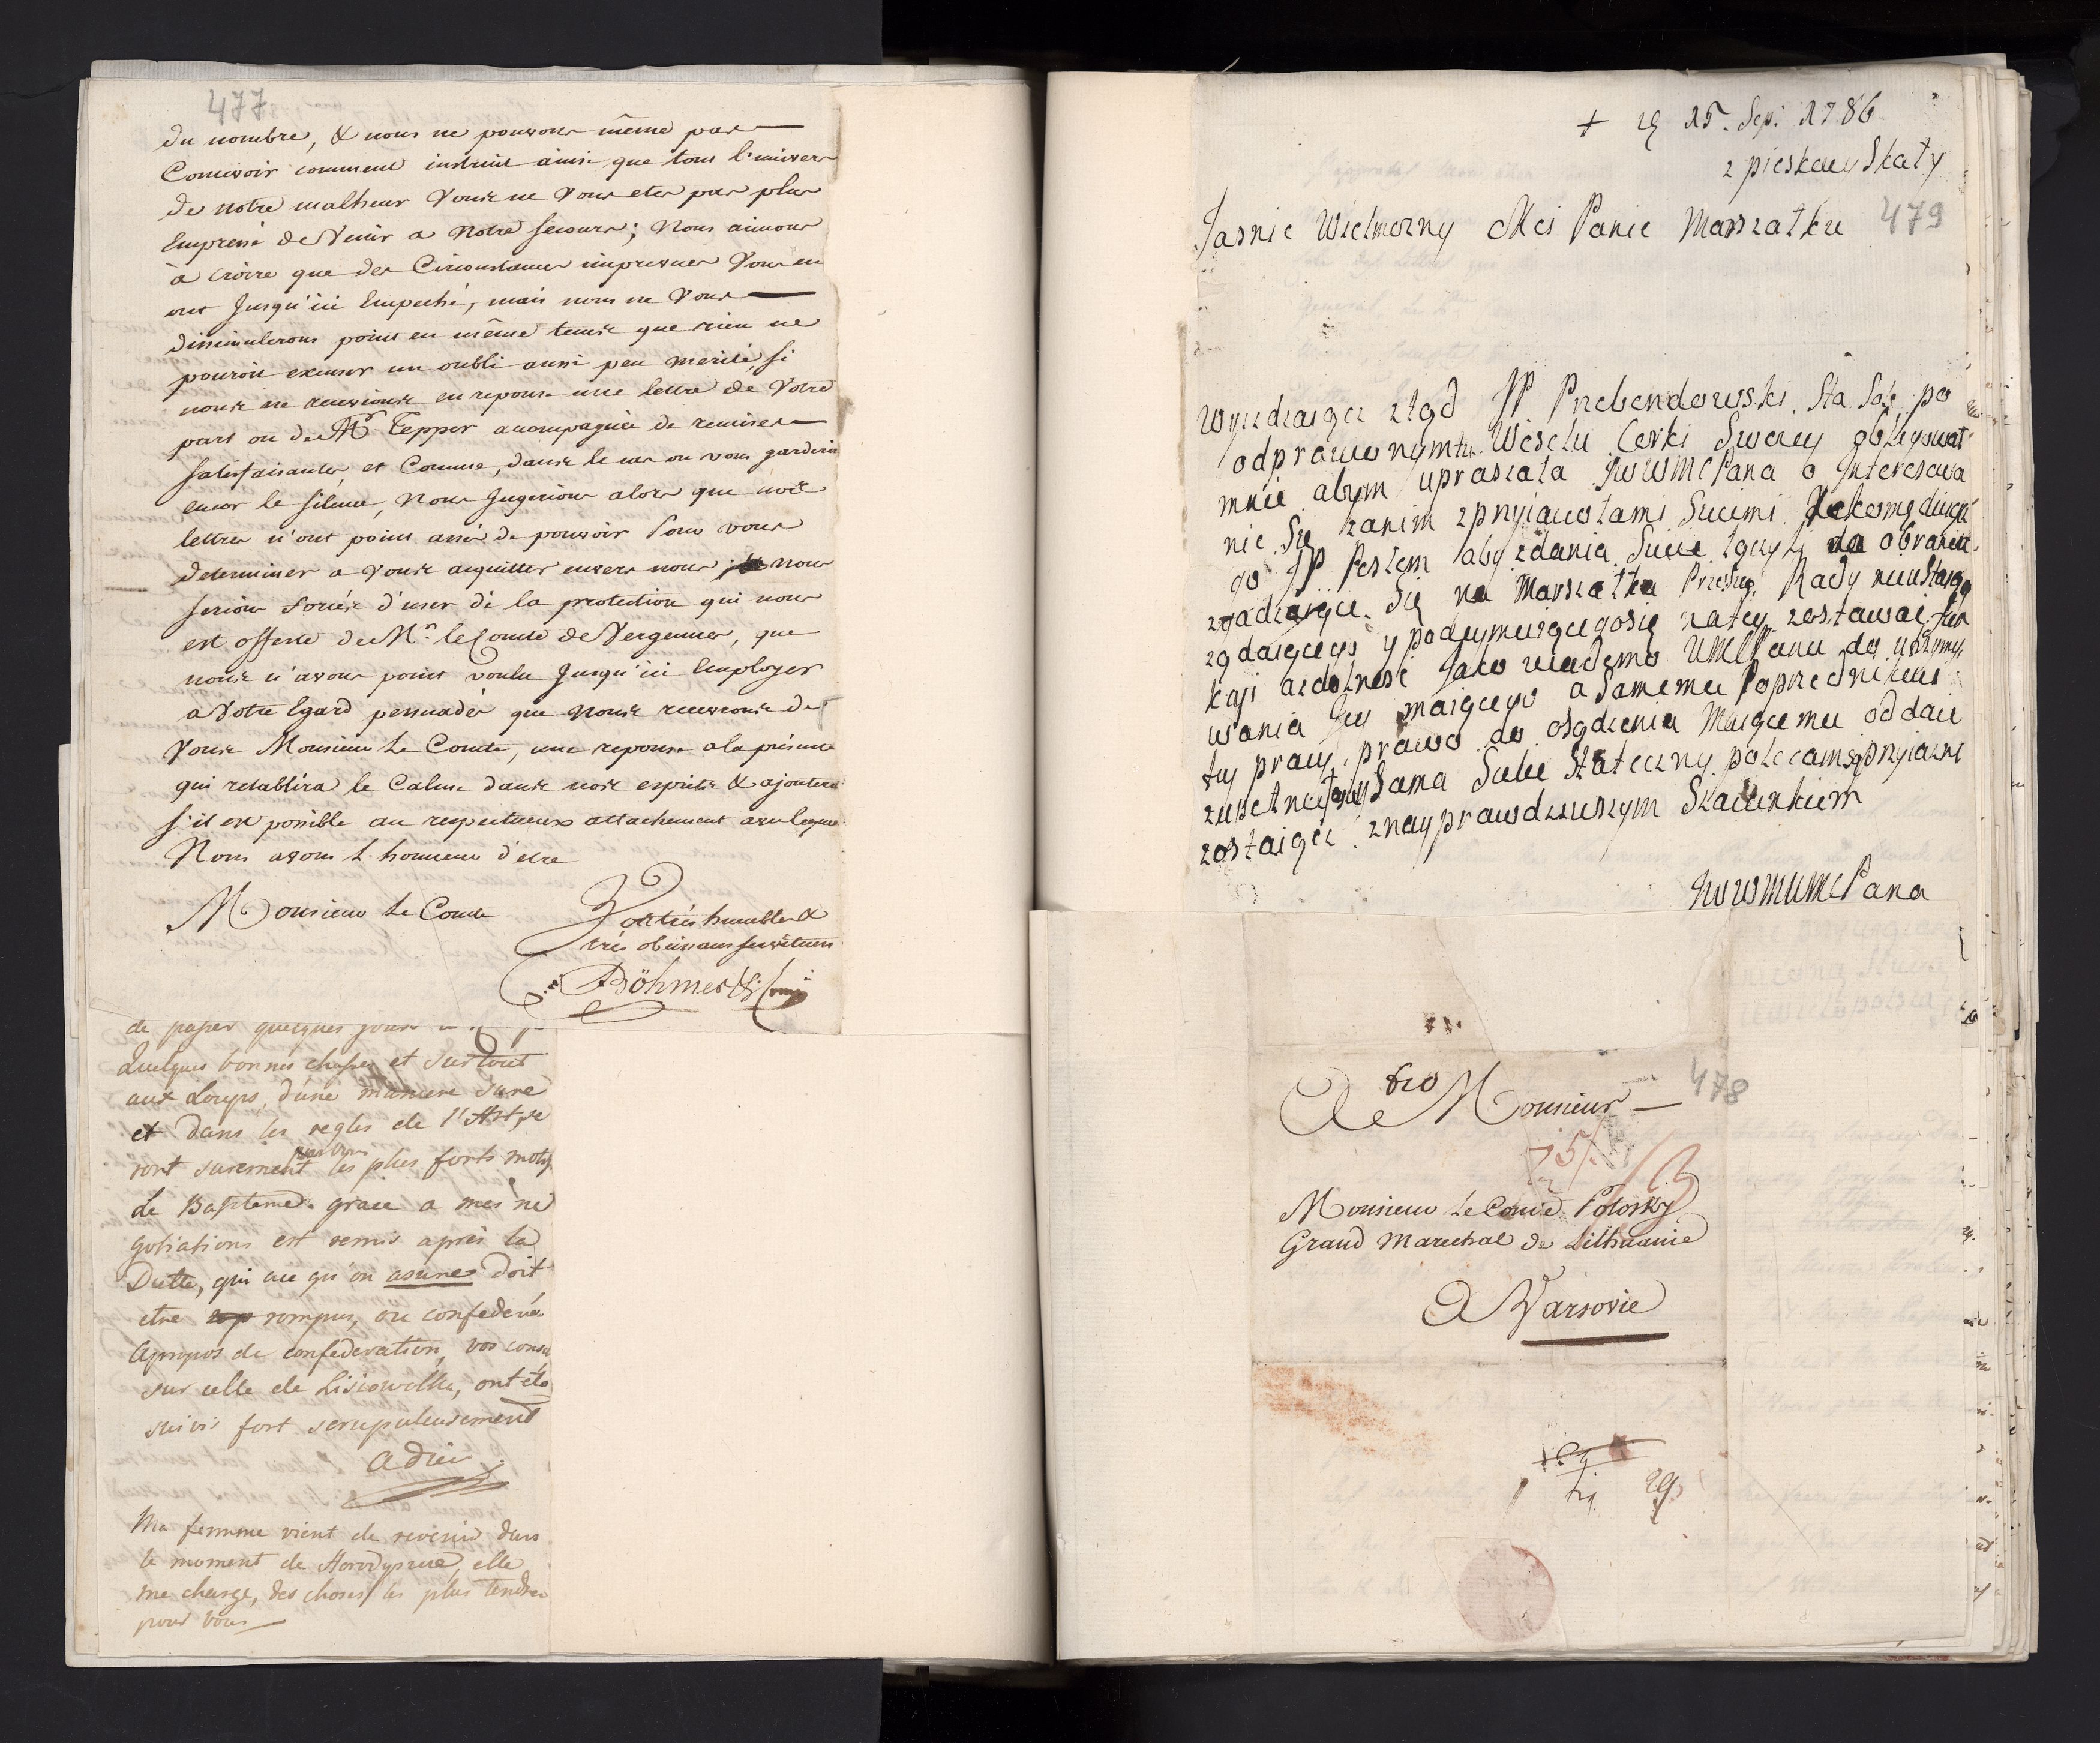 477
du nombre, & nous ne pouvons même pas
Concevoir comment instruit ainsi que tout l'univers
de notre malheur Vous ne Vous etes pas plus
Empressé de Venir a Notre secours; Nous aimons
à croire que des Circonstances imprevues Vous en
ont Jusqu'ici Empeché, mais nous ne Vous
dissimulerons point en même tems que rien ne
pouroit excuser un oubli aussi peu merité, si
nous ne recevions en reponse une lettre de Votre
part ou de Mr Tepper accompagnée de remises
satisfaisantes, et Comme, dans le cas ou vous garderiez
encor le silence, Nous Jugerions alors que nos
lettres n'ont point assés de pouvoir Pour vous
determiner a vous acquitter envers nous; nous
serions forcés d'user de la protection qui nous
est offerte de Mr. le Comte de Vergennes, que
nous n'avons point voulu Jusqu'ici Employer
a Votre Egard persuadés que nous recevrons de
Vous Monsieur Le Comte, une reponse a la présente
qui retablira le Calme dans nos esprits & ajoutera
s'il est possible au respectueux attachement avec lequel
Nous avons l'honneur d'etre
Monsieur Le Comte
Vos très humbles &
très obeissans serviteurs
Böhmer &
de passer quelques jours
Quelques bonnes chasses et surtout
aux Loups, d'une maniere sure
et dans les regles de l'Art, se
ront surement pour vous les plus forts motifs
de Bapteme. grace a mes ne
gotiations est remis après la
Diette, qui a ce qu'on assure doit
etre rompue, ou confederée
Apropos de confederation, vos conseils
sur celle de, ont été
suivis fort scrupuleusement
adieu
Ma femme vient de revenir dans
le moment de Horodyszcze, elle
me charge, des choses les plus tendres
pour vous
+ 15. Sep. 1786
z pieskowy Skały
Jasnie Wielmozny Mci Panie Marszałku 479
Wyiezdzaiąc ztąd JP Przebendowski Sta. Sol. po
odprawionym tu Weselu Corki Swoiey obligował
mnie abym upraszała JWWMCPana o Interesowa
nie Się zanim z przyiaciołami Swemi
go JP Posłem aby zdania Swe łączyli do obrania
zgadzaiące Się na Marszałka Rady
żądaiącego y podeymuiącego się zatey zostawać fun
kcyi a zdolnosc Jako wiadomo WMCPanu do utrzymy
wania Jey maiącego a Samemu Poprzednikowi
tey pracy prawo do osądzenia Maiącemu oddaie
zupełney Sama Siebie Stateczny polecam się przyiazni
zostaiąc z nayprawdziwszym Szacunkiem
JWWMWMCPana
fco
478
A Monsieur
Monsieur Le Comte Potosky
Grand Marechal de Lithuanie
A Varsovie
29